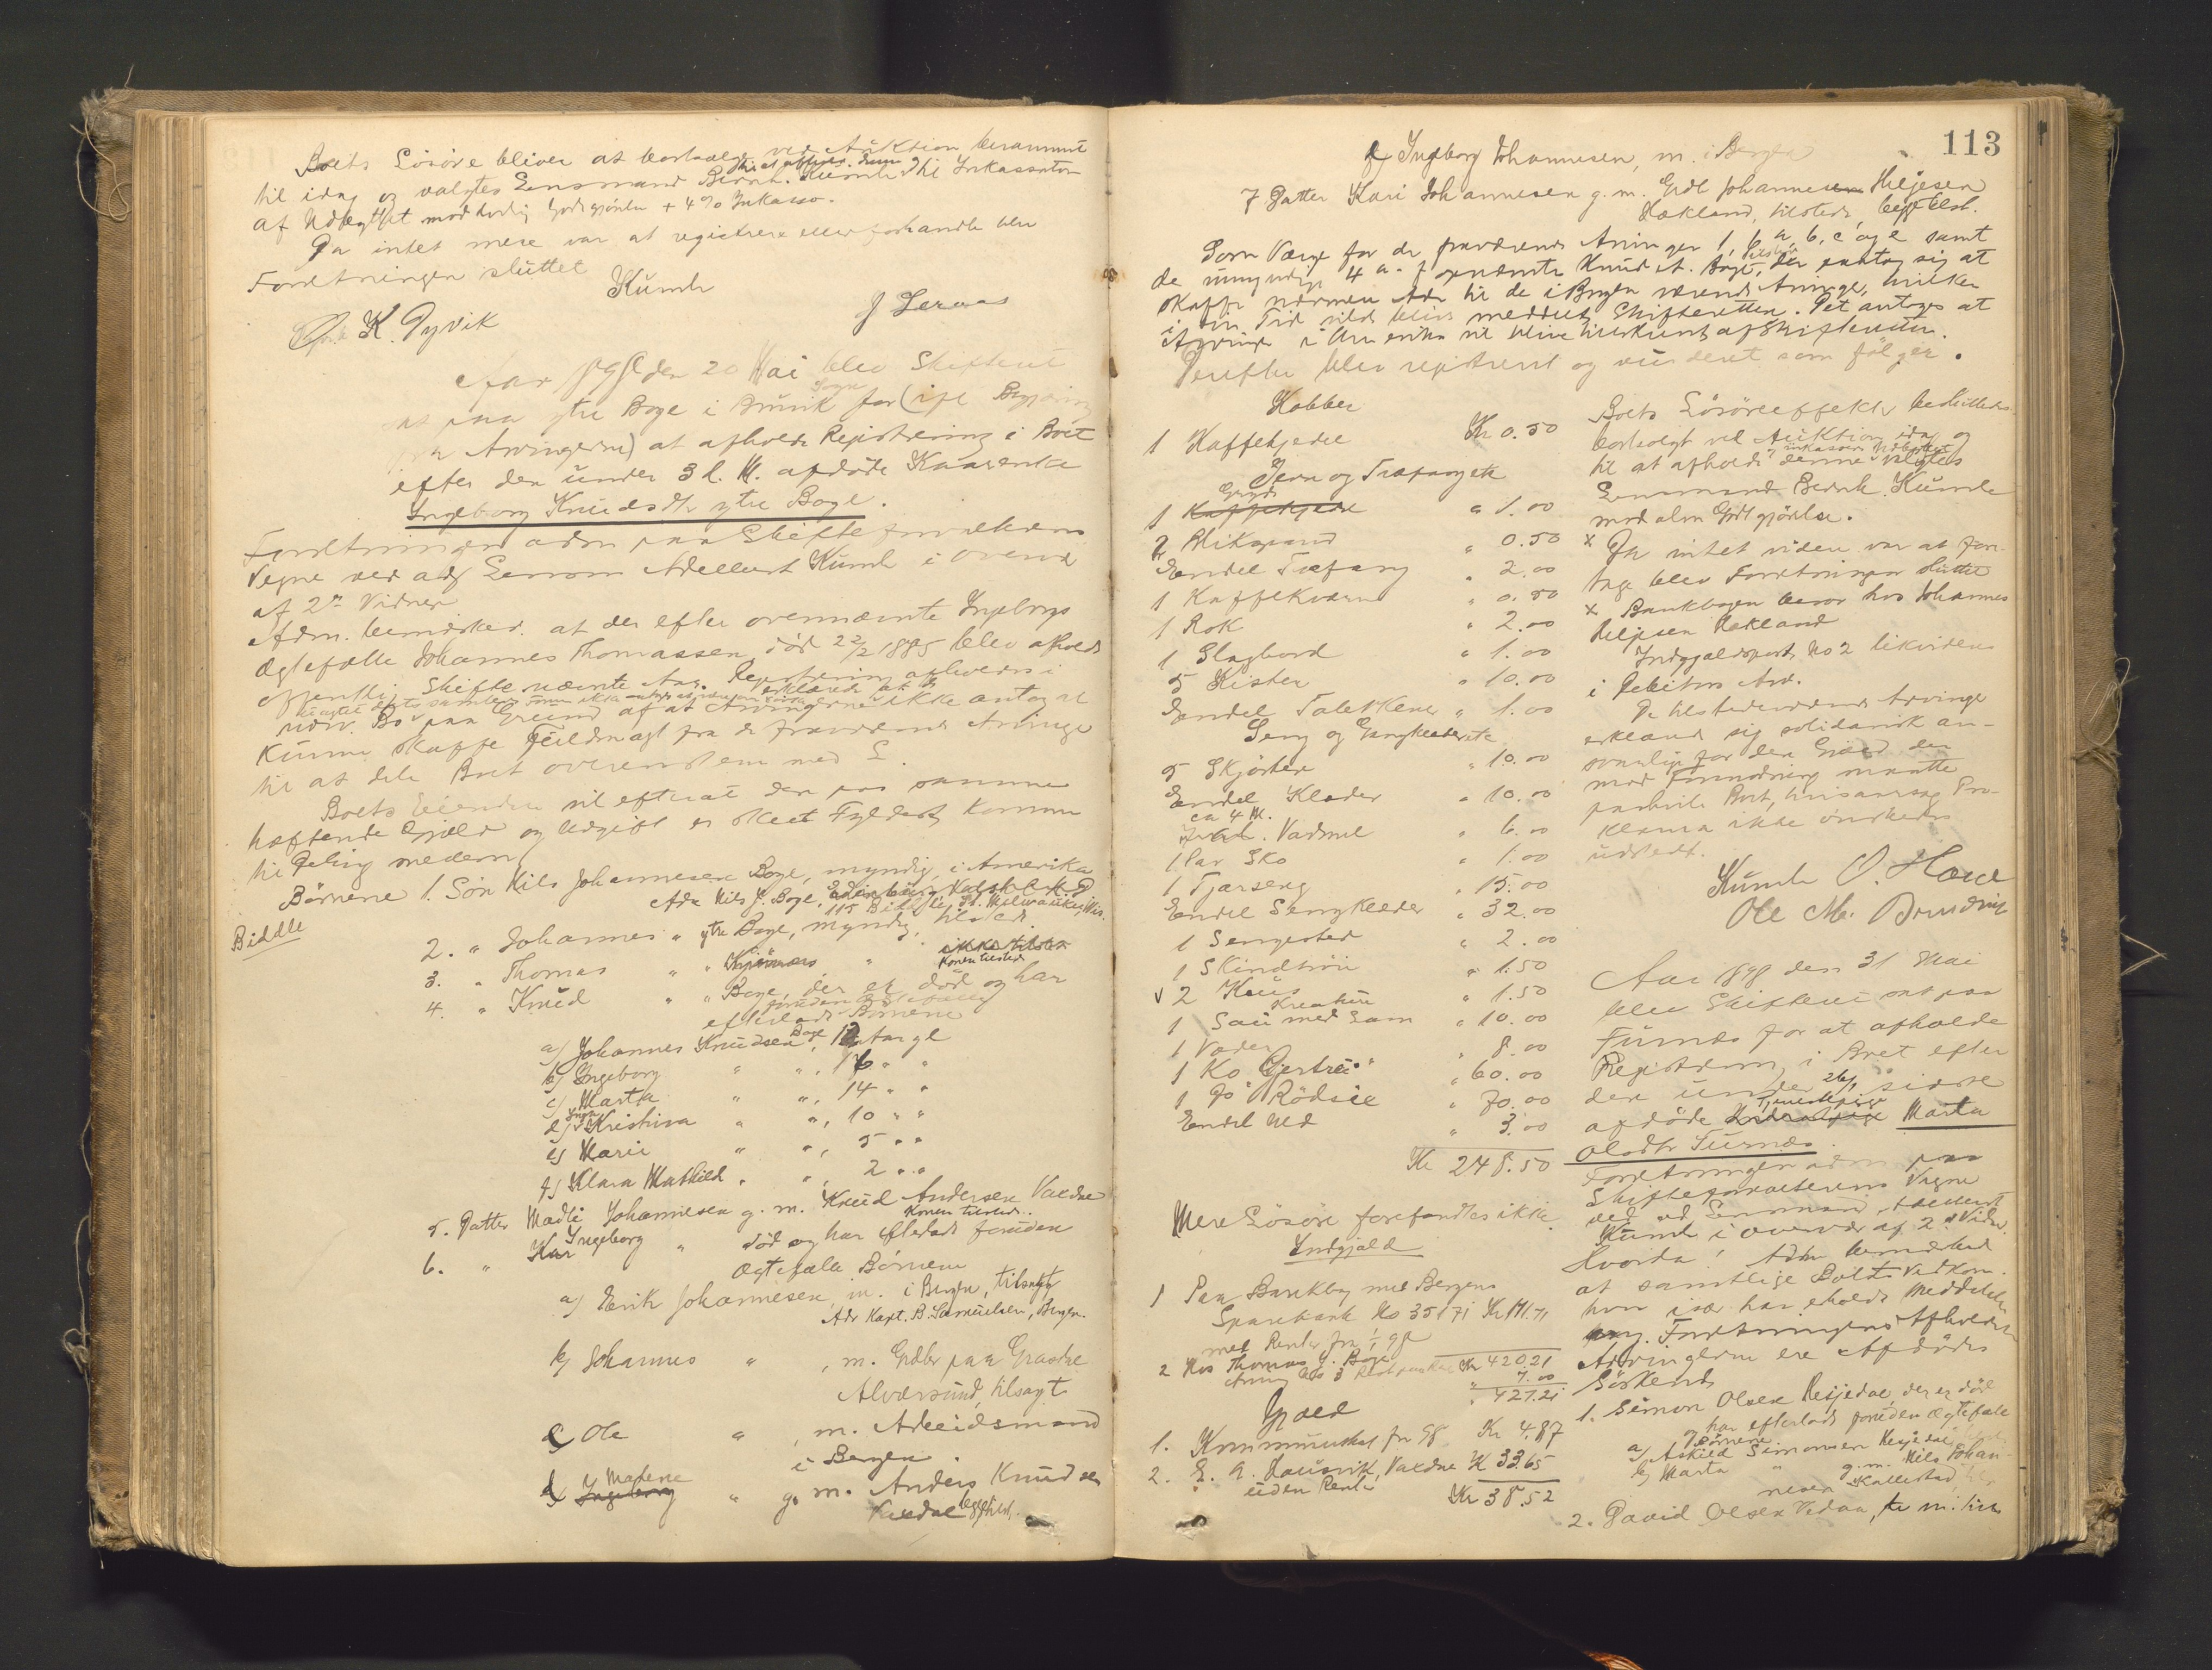 Boets Lösöre bliver at bortsælge ved Auktion berammet
til idag og valgtes Lensmand Bernh. Kumle til at afholde denne & til Inkassator
af Udbyttet mod lovlig Godtgjörelse + 4% Inkasso.
Da intet mere var at registrere eller forhandle blev
Forretningen sluttet
Kumle
K. Dyvik
J Leraas
Aar 1898 den 20 Mai blev Skifteret
sat paa ytre Boge i Bruvik Sogn for (ifl Begjæring
fra Arvingerne) at afholde Registrering i Boet
efter den under 3 l. M. afdöde Kaarenke
Ingeborg Knudsdtr ytre Boge.
Forretningen adm paa Skifteforvalterens
Vegne ved adj Lensm Adelbert Kumle i Overvær
af 2de Vidner
Adm. bemærked. at der efter ovennævnte Ingeborgs
Ægtefælle Johannes Thomassen, död 22/2 1885 blev afholdt
offentlig Skifte nævnte Aar. Registrering afholdes i
nærv. Bo paa Grund af at Arvingerne erklærede at de ikke antog at
kunne skaffe Fuldmagt fra de fraværende Arvinge
til at dele Boet overensstem med L.
Boets Eiendele vil efterat der paa samme
hæftende Gjæld og Udgift er skeet Fyldest komme
til Deling mellem
Börnene 1. Sön Nils Johannesen Boge, myndig, i Amerika
Adr Nils J. Boge, 115 Biddle St. Milwaukee, Wis.
Biddle
2. " Johannes " ytre Boge, myndig, tilstede
3. " Thomas " " " ikke tilstede
Konen tilstede
4. " Knud " " Boge, der er död og har
efterladt foruden Ægtefælle Börnene
a) Johannes Knudsen Boge, 12 Aar gl
b) Ingeborg " ", 16 " "
c) Marta " ", 14 " "
d) Inga Kristina " ", 10 " "
e) Marie " ", 5 " "
f) Klara Mathilde " ", 2 " "
5. Datter Madli Johannesen g. m. Knud Andersen Vaxdal
Konen tilstede.
6. " Ingeborg " död og har efterladt foruden
Ægtefælle Börnene
a) Erik Johannesen, m. i Bergen, tilsagt
Adr Kapt. B. Samuelsen, Bergen.
b) Johannes " , m. Grdbr paa
Alversund, tilsagt
c) Ole " , m. Arbeidsmand
i Bergen.
d) Madene " g. m. Anders Knudsen
Vaxdal begge tilst.
113
e) Ingeborg Johannesen, m. i Bergen
7 Datter Kari Johannesen g. m. Grdb Johannes Heljesen
Hækland, tilstede, begge tilst.
Som Værge for de fraværende Arvinger 1, 6 a, b, c og e samt
de umyndige 4 a-f opnævntes Knud A. Boge, tilstede, der paatog sig at
skaffe nærmere Adr til de i Bergen værende Arvinge, hvilken
i sin Tid vilde blive meddelt Skifteretten. Det antoges at
Arvinge i Amerika vil blive tilskrevet af Skifteretten.
Derefter blev registreret og vurderet som fölger.
Kobber
1 Kaffekjedel Kr 0.50
Jern og Træfang etc
1 Gryde " 1.00
2 Blikspand " 0.50
Endel Træfang " 2.00
1 Kaffekværn " 0.50
1 Rok " 2.00
1 Slagbord " 1.00
5 Kister " 10.00
Endel Talerkener " 1.00
Seng og Gangklæder etc
5 Skjörter " 10.00
Endel Klæder " 10.00
ca 4 M. Vadmel " 6.00
1 Par Sko " 1.00
1 Fjærseng " 15.00
Endel Sengklæder " 32.00
1 Sengested " 2.00
1 Skindtröie " 1.50
2 Kaus " 1.50
Kreature
1 Sau med Lam " 10.00
1 Væder " 8.00
1 Ko "Gjertrei" " 60.00
1 Do "Rödsie " 70.00
Endel Ved " 3.00
Kr 248.50
Mere Lösöre forefandtes ikke.
Indgjæld
1 Paa Bankbog med Bergens
Sparebank No 35171 Kr 171.71
med Renter fra 1/1 98
2 Hos Thomas J. Boge
Kr 420.21
" 7.00
" 427.21
Gjæld
1. Kommuneskat for 98 Kr 4.87
2. E. A. Hausvik, Vaxdal Kr 33.65
uden Rente
Kr 38.52
Boets Lösöreeffekter besluttedes
bortsolgt ved Auktion idag og
til at afholde denne & inkassere Udbyttet valgtes
Lensmand Bernh. Kumle
mod alm Godtgjörelse.
x Da intet videre var at fore-
tage blev Forretningen sluttet
x Bankbogen beror hos Johannes
Heljesen Hækland
Indgjældspost No 2 likvideres
i Debitors Arv.
De tilstedeværende Arvinge
erklærede sig solidarisk an-
svarlige for den Gjæld der
mod Formodning maatte
paahvile Boet, hvisaarsag Pro-
klama ikke önskedes
udstedt.
Kumle O. Hæve
Ole M. Bruvik
Aar 1898 den 31 Mai
blev Skifteret sat paa
Furnes for at afholde
Registrering i Boet efter
den under 26/ sidste
afdöde Tjenestepige Marta
Olsdtr Furnes.
Forretningen adm paa
Skifteforvalterens Vegne
ved adj Lensmand Adelbert
Kumle i overvær af 2de Vidner
Hvorda! Adm bemærked
at samtlige Boets Vedkom.
har ikke erholdt Meddelelse
ang. Forretningens Afholdelse
Arvingerne ere Afdödes
Söskende
1. Simon Olsen Hesjedal, der er död
og har efterladt foruden Ægtefælle
Börnene
a) Askild Simonsen Hesjedal
b) Marta " g. m. Nils Johan-
nesen Kallestad
2. David Olsen Vedaa,